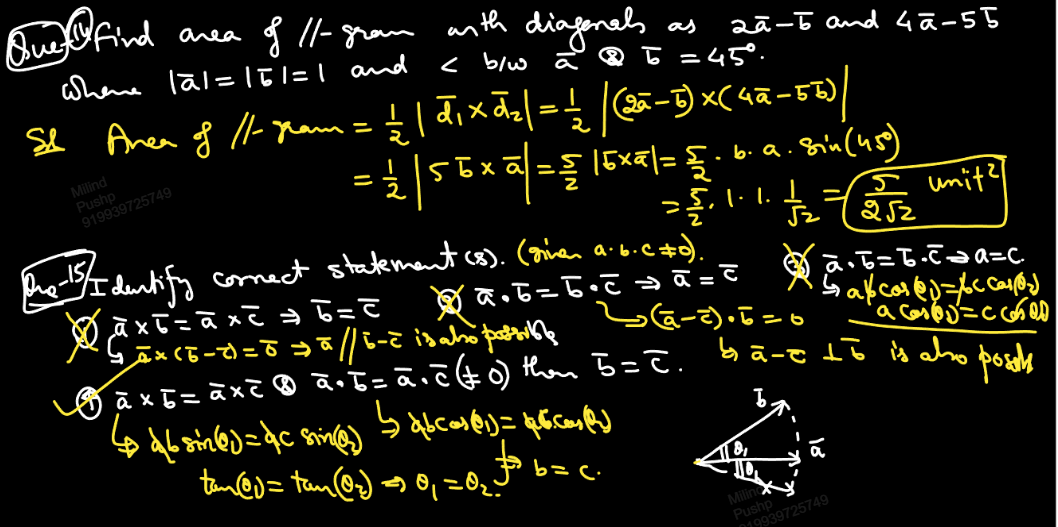 Que-14 Find area of //-gram with diagonals as 2ā-b̄ and 4ā-5b̄
where |ā|=|b̄|=1 and < b/w ā & b̄ = 45°.
Sol Area of //-gram = 1/2 | d̄₁ × d̄₂ | = 1/2 |(2ā-b̄)×(4ā-5b̄)|
= 1/2 | 5 b̄ × ā | = 5/2 |b̄×ā| = 5/2 · b · a · sin(45°)
= 5/2 · 1 · 1 · 1/√2 = 5/2√2 unit²
Milind
Pushp
919939725749
Que-15 Identify correct statement(s). (given a·b·c≠0).
① ā × b̄ = ā × c̄ ⇒ b̄ = c̄
↳ ā×(b̄-c̄)=ō ⇒ ā // b̄-c̄ is also possible
② ā·b̄ = b̄·c̄ ⇒ ā = c̄
↳ (ā-c̄)·b̄ = 0
↳ ā-c̄ ⊥ b̄ is also possible
③ ā·b̄ = b̄·c̄ ⇒ a=c.
↳ ab cos(θ₁) = bc cos(θ₂)
a cos(θ₁) = c cos(θ₂)
④ ā × b̄ = ā × c̄ & ā·b̄ = ā·c̄ (≠0) then b̄ = c̄.
↳ ab sin(θ₁) = ac sin(θ₂)
↳ ab cos(θ₁) = ac cos(θ₂)
tan(θ₁) = tan(θ₂) → θ₁ = θ₂.
⇒ b = c.
b̄
θ₁
ā
θ₂
Milind
Pushp
919939725749